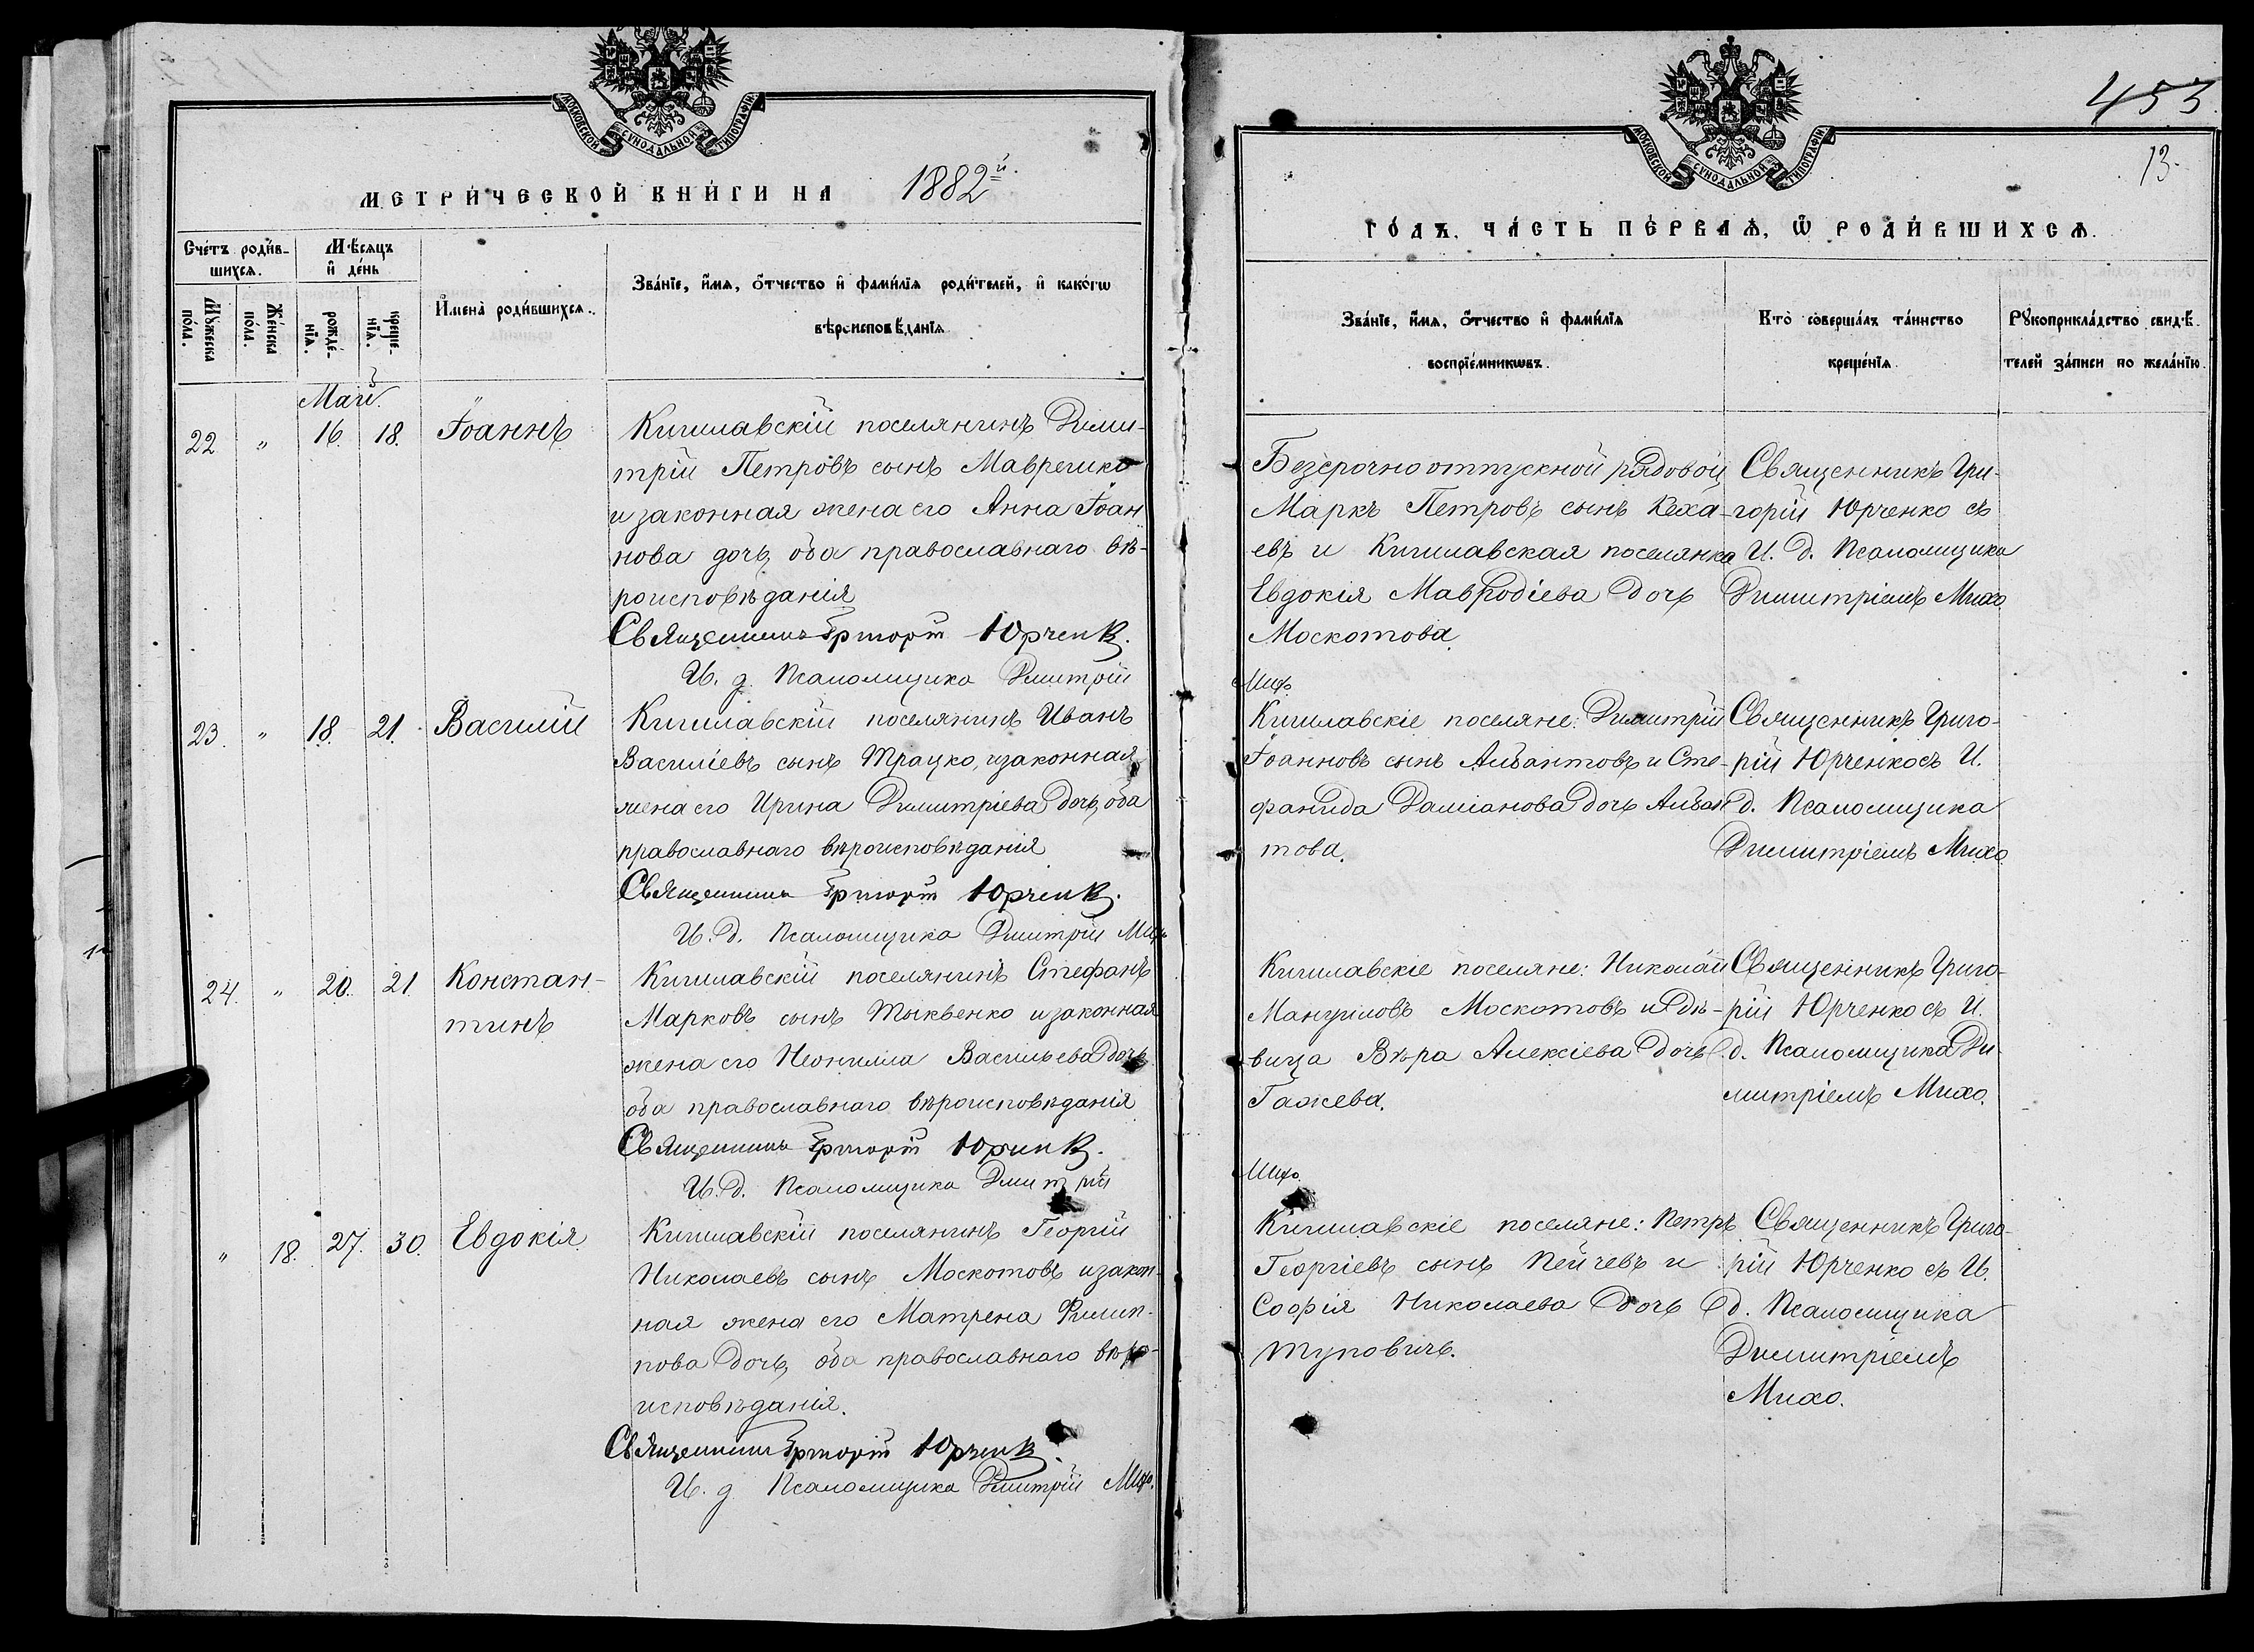 МОСКОВСКОЙ СѴНОДАЛЬНОЙ ТИПОГРАФІИ
МЕТРИ́ЧЕСКОЙ КНИ́ГИ НА 1882й.
Сче́тъ роди́в-
шихся.
Мѣ́сяцъ
и҆ де́нь
Мꙋ́жеска
по́ла.
Же́нска
по́ла.
рожде́-
нїѧ.
креще́-
нїѧ.
И҆мена̀ роди́вшихся.
Зва́нїе, и҆́мѧ, ѻ҆́тчество и҆ фами́лїѧ роди́телей, и҆ како́гѡ
вѣроисповѣ́данїѧ
Май.
22 " 16. 18. Іоаннъ
Кишлавскій поселянинъ Дими-
трій Петровъ сынъ Мавречико
и законная жена его Анна Іоан
нова дочь, оба православнаго вѣ-
роисповѣданія
Священникъ Григорій Юрченко.
И. д. Псаломщика Дмитрій
23. " 18. 21. Василій
Кишлавскій поселянинъ Иванъ
Василіевъ сынъ Трацко, изаконная
жена его Ирина Димитріева дочь, оба
православнаго вѣроисповѣданія
Священникъ Григорій Юрченко.
И. д. Псаломщика Дмитрій Михо
24. " 20. 21. Констан-
тинъ
Кишлавскій поселянинъ Стефанъ
Марковъ сынъ Тыквенко изаконная
жена его Неонилла Васильева дочь
оба православнаго вѣроисповѣданія
Священникъ Григорій Юрченко.
И. д. Псаломщика Дмитрій
" 18. 27. 30. Евдокія
Кишлавскій поселянинъ Георгій
Николаевъ сынъ Москотовъ изакон-
ная жена его Матрена Филип-
пова дочь, оба православнаго вѣро-
исповѣданія.
Священникъ Григорій Юрченко.
И. д. Псаломщика Дмитрій Михо.
МОСКОВСКОЙ СѴНОДАЛЬНОЙ ТИПОГРАФІИ
453
13.
ГО́ДЪ. ЧА́СТЬ ПЕ́РВАѦ, Ѡ҆ РОДИ́ВШИХСѦ.
Зва́нїе, и҆́мѧ, ѻ҆́тчество и҆ фами́лїѧ
воспрїе́мникѡвъ.
Кто̀ соверша́лъ та́инство
креще́нїѧ.
Рꙋкоприкла́дство свидѣ́-
телей за́писи по жела́нїю.
Безсрочноотпускной рядовой
Маркъ Петровъ сынъ Кеха-
евъ и Кишлавская поселянка
Евдокія Мавродіева дочь
Москотова.
Священникъ Гри-
горій Юрченко съ
И. д. Псаломщика
Димитріемъ Михо
Михо.
Кишлавскіе поселяне: Димитрій
Іоанновъ сынъ Алвантовъ и Сте-
фанида Даміанова дочь Алван
това.
Священникъ Григо-
рій Юрченко съ И.
д. Псаломщика
Димитріемъ Михо
Кишлавскіе поселяне: Николай
Мануиловъ Москотовъ и дѣ-
вица Вѣра Алексіева дочь
Гажева.
Священникъ Григо-
рій Юрченко съ И.
д. Псаломщика Ди-
митріемъ Михо.
Михо.
Кишлавскіе поселяне: Петръ
Георгіевъ сынъ Пейчевъ и
Софія Николаева дочь
Туповичъ.
Священникъ Григо-
рій Юрченко съ И.
д. Псаломщика
Димитріемъ
Михо.